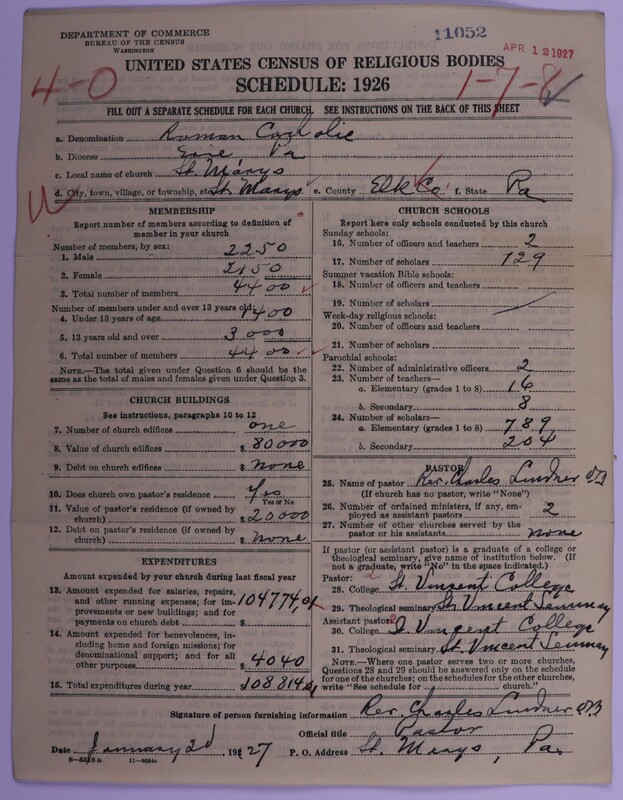 DEPARTMENT OF COMMERCE
BUREAU OF THE CENSUS
WASHINGTON
11052
APR 12 1927
UNITED STATES CENSUS OF RELIGIOUS BODIES
SCHEDULE: 1926
4-0
1-7-8
FILL OUT A SEPARATE SCHEDULE FOR EACH CHURCH. SEE INSTRUCTIONS ON THE BACK OF THIS SHEET
a. Denomination Roman Catholic
b. Diocese Erie Pa
c. Local name of church St. Marys
d. City, town, village, or township, etc. St. Marys e. County Elk Co f. State Pa
MEMBERSHIP
Report number of members according to definition of member in your church
Number of members, by sex:
1. Male 2250
2. Female 2150
3. Total number of members 4400
Number of members under and over 13 years old:
4. Under 13 years of age 1400
5. 13 years old and over 3000
6. Total number of members 4400
NOTE.—The total given under Question 6 should be the same as the total of males and females given under Question 3.
CHURCH BUILDINGS
See instructions, paragraphs 10 to 12
7. Number of church edifices one
8. Value of church edifices $ 80000
9. Debt on church edifices $ none
10. Does church own pastor's residence Yes
Yes or No
11. Value of pastor's residence (if owned by church) $ 20000
12. Debt on pastor's residence (if owned by church) $ none
EXPENDITURES
Amount expended by your church during last fiscal year
13. Amount expended for salaries, repairs, and other running expenses; for improvements or new buildings; and for payments on church debt $ 104774,01
14. Amount expended for benevolences, including home and foreign missions; for denominational support; and for all other purposes $ 4040
15. Total expenditures during year 108814,01
CHURCH SCHOOLS
Report here only schools conducted by this church
Sunday schools:
16. Number of officers and teachers 2
17. Number of scholars 129
Summer vacation Bible schools:
18. Number of officers and teachers
19. Number of scholars
Week-day religious schools:
20. Number of officers and teachers
21. Number of scholars
Parochial schools:
22. Number of administrative officers 2
23. Number of teachers—
a. Elementary (grades 1 to 8) 16
b. Secondary 8
24. Number of scholars—
a. Elementary (grades 1 to 8) 789
b. Secondary 204
PASTOR
25. Name of pastor Rev. Charles Lindner
(If church has no pastor, write "None")
26. Number of ordained ministers, if any, employed as assistant pastors 2
27. Number of other churches served by the pastor or his assistants none
If pastor (or assistant pastor) is a graduate of a college or theological seminary, give name of institution below. (If not a graduate, write "No" in the space indicated.)
Pastor:
28. College St. Vincent College
29. Theological seminary St Vincent Seminary
Assistant pastor:
30. College St Vincent College
31. Theological seminary St. Vincent Seminary
NOTE.—Where one pastor serves two or more churches, Questions 28 and 29 should be answered only on the schedule for one of the churches; on the schedules for the other churches, write "See schedule for church."
Signature of person furnishing information Rev. Charles Lindner
Official title Pastor
Date January 2d, 1927 P. O. Address St. Marys, Pa.